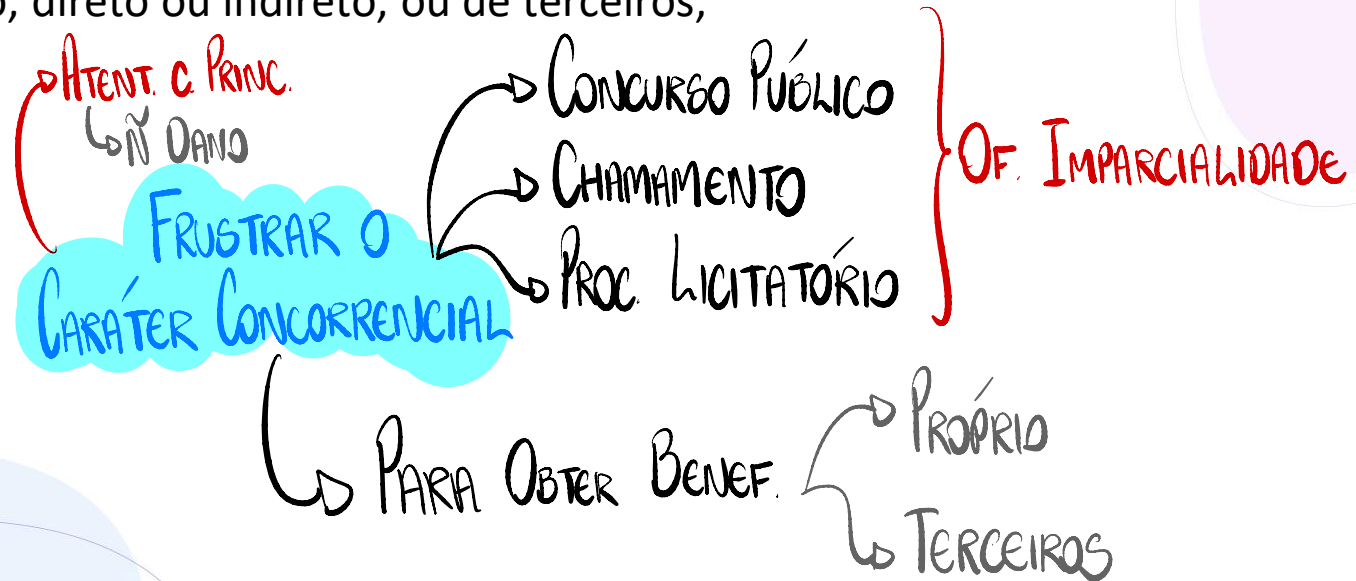 o, direto ou indireto, ou de terceiros,
ATENT. C. PRINC.
Ñ DANO
FRUSTRAR O
CARÁTER CONCORRENCIAL
CONCURSO PÚBLICO
CHAMAMENTO
PROC. LICITATÓRIO
OF. IMPARCIALIDADE
PARA OBTER BENEF.
PRÓPRIO
TERCEIROS